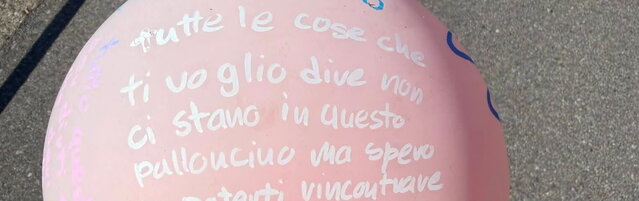 tutte le cose che
ti voglio dire non
ci stano in questo
palloncino ma spero
poterti rincontrare